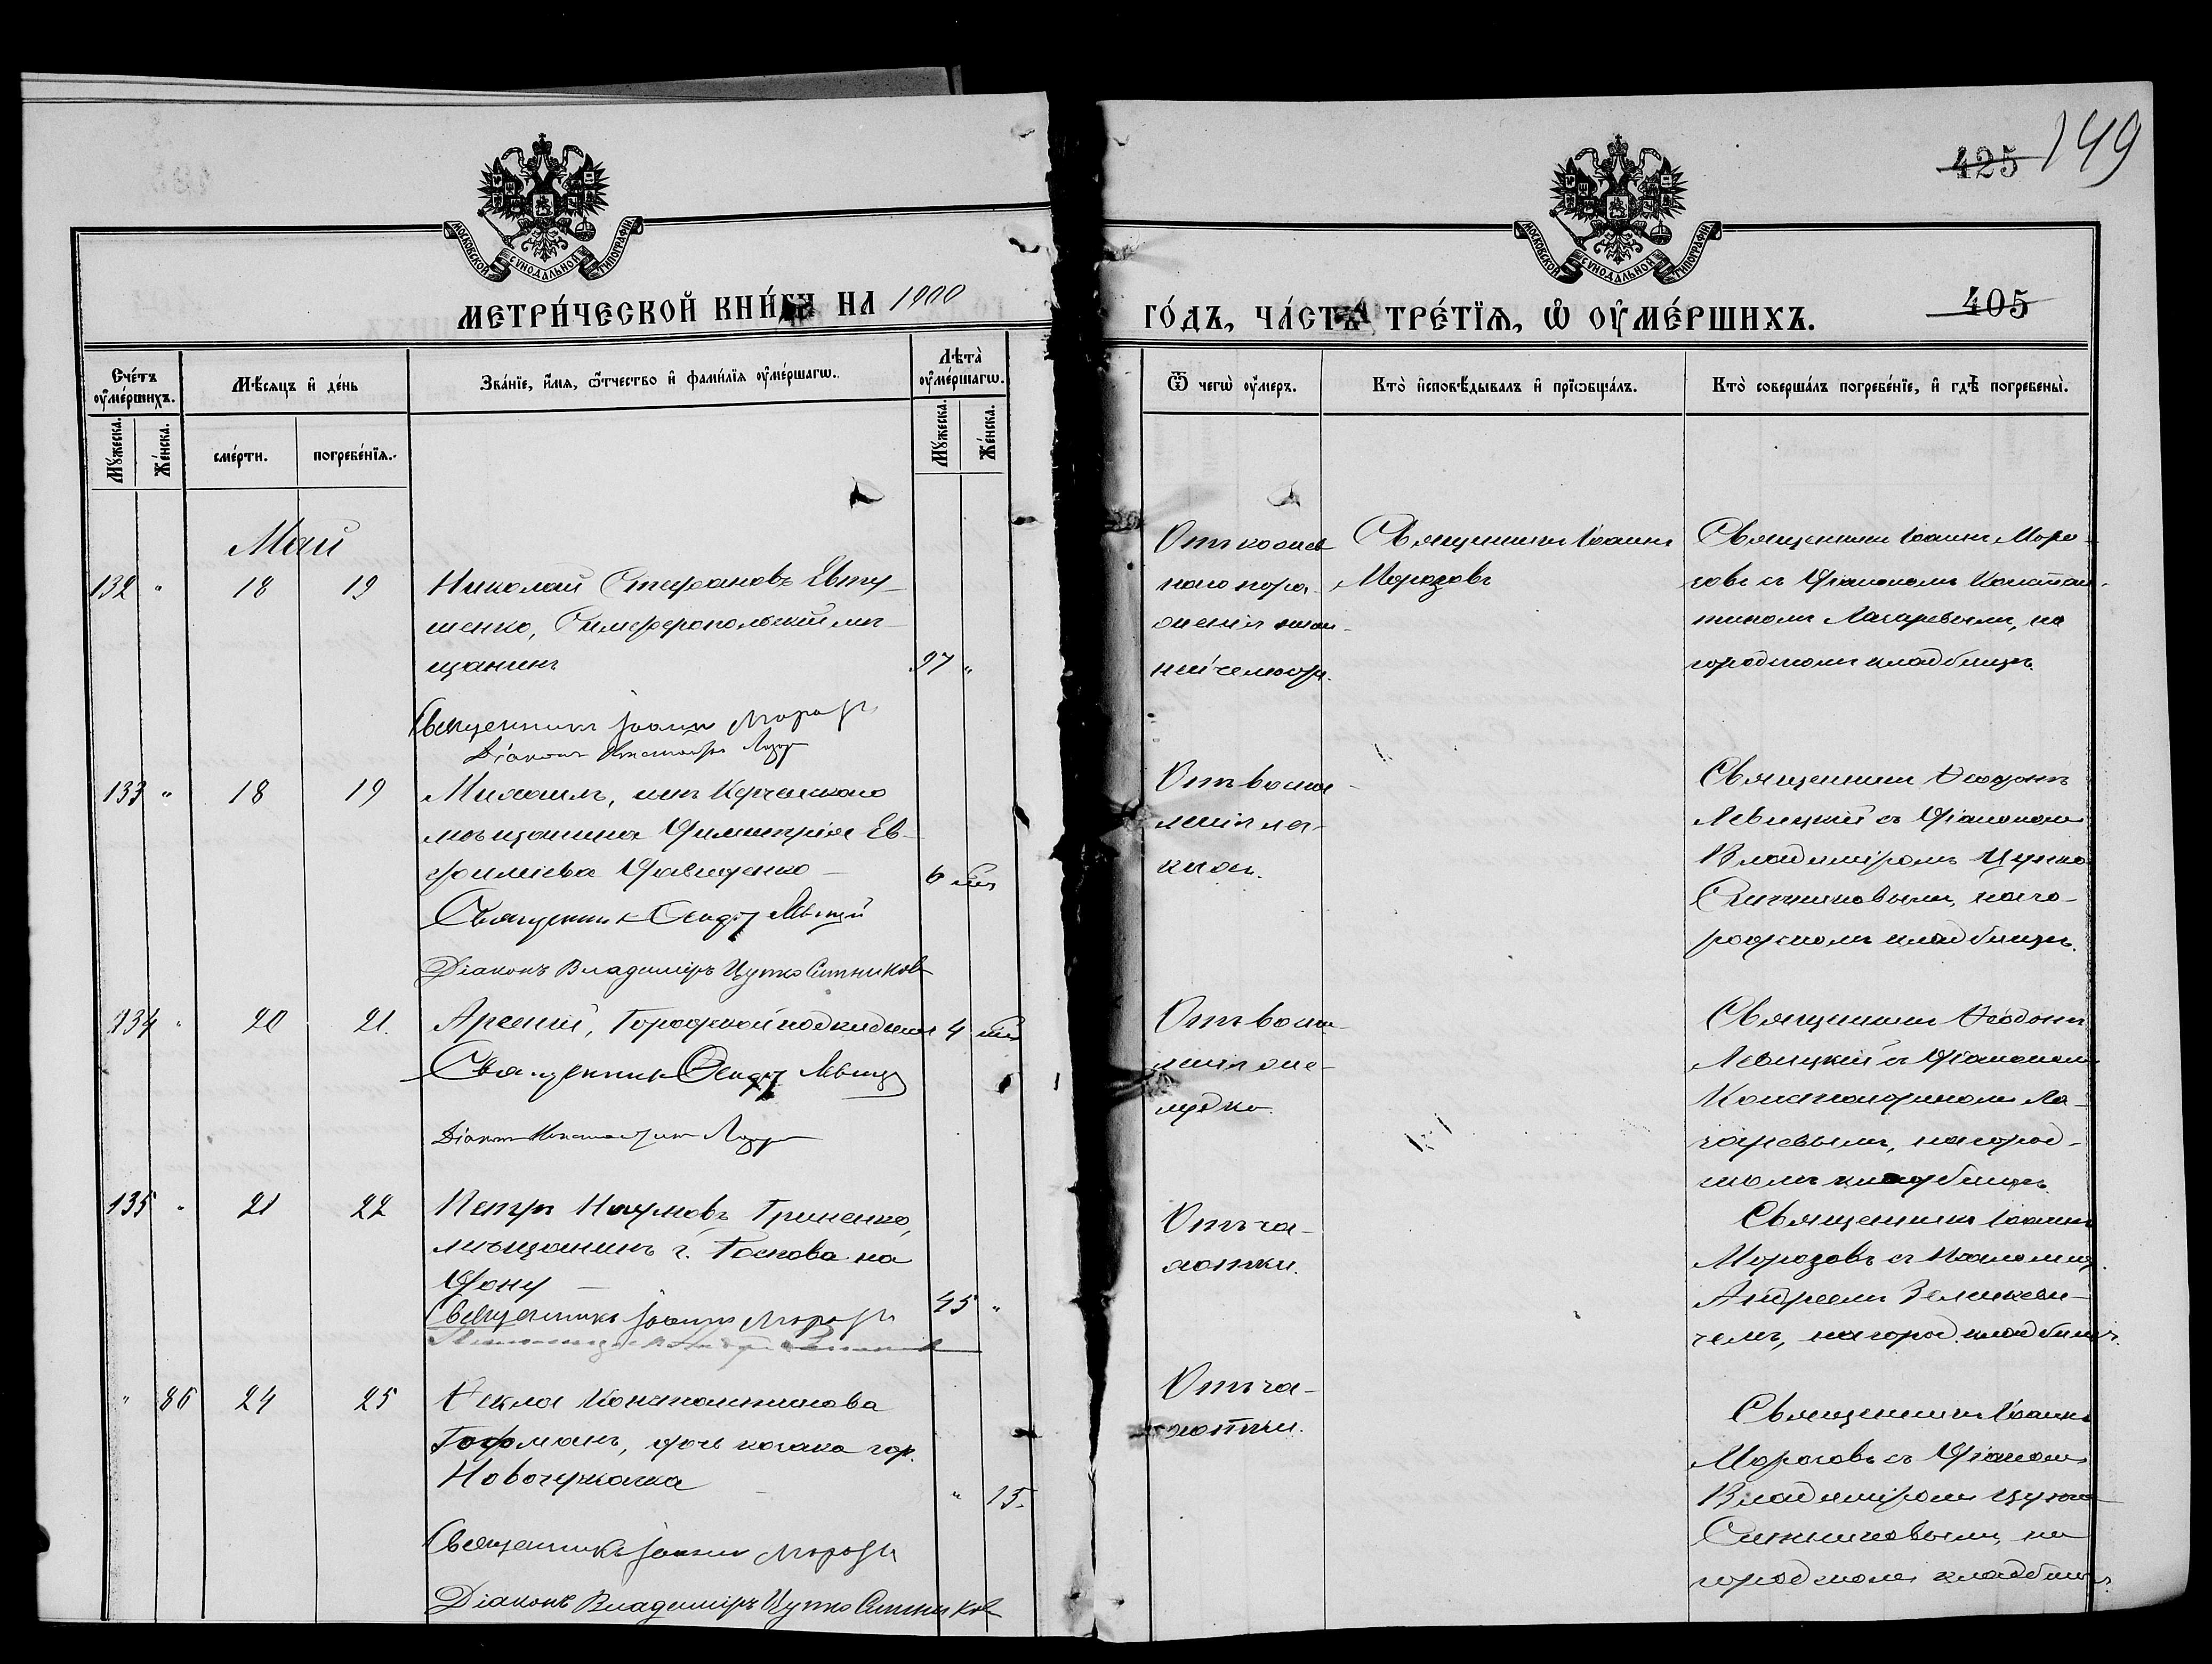 425 149
МОСКОВСКОЙ СУНОДАЛЬНОЙ ТИПОГРАФІИ
МОСКОВСКОЙ СУНОДАЛЬНОЙ ТИПОГРАФІИ
МЕТРИ́ЧЕСКОЙ КНИ́ГИ НА 1900
ГО́ДЪ, ЧА́СТЬ ТРЕ́ТЇѦ, Ѡ ОУ҆МЕ́РШИХЪ.
405
Сче́тъ оу҆ме́ршихъ.
Мѣ́сяцъ и҆ де́нь
Зва́нїе, и҆́мѧ, ѻ҆́тчество и҆ фами́лїѧ оу҆ме́ршагѡ.
Лѣта̀ оу҆ме́ршагѡ.
Ѿ чегѡ̀ оу҆́меръ.
Кто̀ и҆сповѣ́дывалъ и҆ прїѡбща́лъ.
Кто̀ соверша́лъ погребе́нїе, и҆ гдѣ̀ погребены̀.
Мꙋ́жеска.
Же́нска.
сме́рти.
погребе́нїѧ.
Мꙋ́жеска.
Же́нска.
Май
132 " 18 19 Николай Стефановъ Евту-
шенко, Симферопольскій мѣ-
щанинъ "
Священникъ Іоаннъ Морозовъ
Діаконъ Константинъ
нижней челюсти.
Священникъ Іоаннъ
Морозовъ
Священникъ Іоаннъ Моро-
зовъ съ Діакономъ Констан-
тиномъ Лазаревымъ, на
городскомъ кладбищѣ.
133 " 18 19 Михаилъ, сынъ Керченскаго
мѣщанина Димитрія Ев-
фиміева Давиденко 6
Священникъ Левицкій
Діаконъ Владиміръ Цупко Ситниковъ
Отъ воспа-
ленія лег-
кихъ.
Священникъ Ѳеодоръ
Левицкій съ Діакономъ
Владиміромъ Цупко
Ситниковымъ, на го-
родскомъ кладбищѣ.
134 " 20 21. Арсеній, Городской подкидышъ 4
Священникъ Левицкій
Діаконъ Константинъ
Отъ воспа-
ленія же-
лудка.
Священникъ Ѳеодоръ
Левицкій съ Діакономъ
Константиномъ Ла-
заревымъ, на город-
скомъ кладбищѣ.
135 " 21 22 Петръ Наумовъ Гриненко,
мѣщанинъ г. Ростова на
Дону 45 "
Священникъ Іоаннъ Морозовъ
Отъ ча-
хотки.
Священникъ Іоаннъ
Морозовъ съ Псаломщ.
Андреемъ
чемъ, на город. кладбищѣ.
" 86 24 25 Ѳекла Константинова
Гофманъ, дочь казака гор.
Новочеркаска " 15.
Священникъ Іоаннъ Морозовъ
Діаконъ Владиміръ Цупко Ситниковъ
Отъ ча-
хотки.
Священникъ Іоаннъ
Морозовъ съ Діаконом
Владиміромъ Цупко
Ситниковымъ, на
городскомъ кладбищѣ.